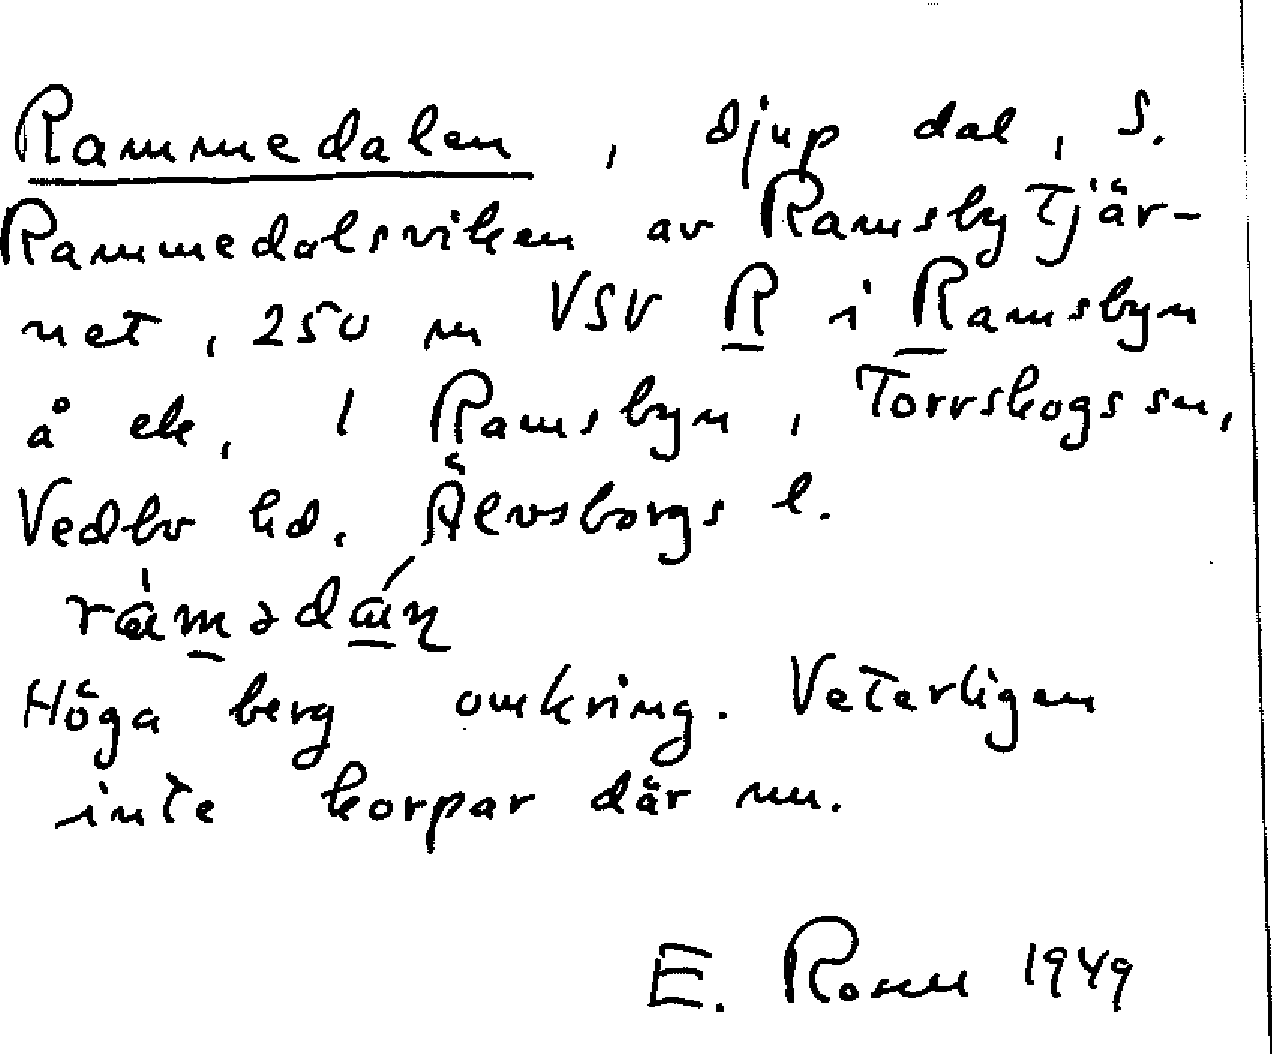 Rammedalen, djup dal, S.
Rammedalsviken av Ramsbytjär-
net, 250 m VSV R i Ramsbyn
å ek, 1 Ramsbyn, Torrskogs sn,
Vedbo hd. Älvsborgs l.
Höga berg omkring. Veterligen
inte korpar där nu.
E. Rosell 1949